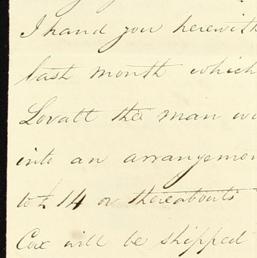 I hand you herewith
last month which
Lovatt the man
into an arrangemen
to £ 14 or thereabouts
Cox will be shipped